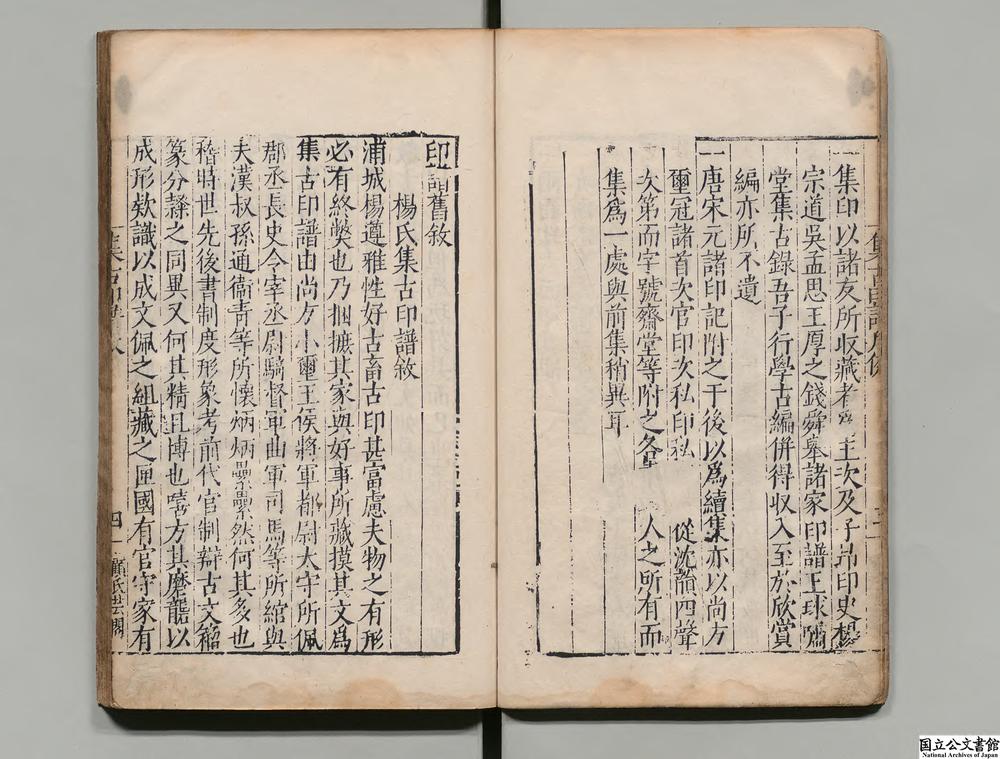 一集印以諸友所収藏者爲主次及子昂印史楊
宗道吳孟思王厚之錢舜舉諸家印譜王球嘯
堂集古錄吾子行學古編併得収入至於欣賞
編亦所不遺
一唐宋元諸印記附之于後以爲續集亦以尚方
璽冠諸首次官印次私印私 從沈韻四聲
次第而字號齋堂等附之各 人之所有而
集爲一處與前集稍異耳
印譜舊敘
楊氏集古印譜敘
浦城楊遵雅性好古畜古印甚富慮夫物之有形
必有終獘也乃捆摭其家與好事所藏摸其文爲
集古印譜由尚方小璽王侯將軍都尉大守所佩
郡丞長史令宰丞尉騎督軍曲軍司馬等所綰與
夫漢叔孫通衞青等所懷炳炳纍纍然何其多也
稽時世先後書制度形象考前代官制辯古文籀
篆分隸之同異又何其精且博也嘻方其磨礲以
成形欵識以成文佩之組藏之匣國有官守家有
四
顧氏芸閣
国立公文書館
National Archives of Japan